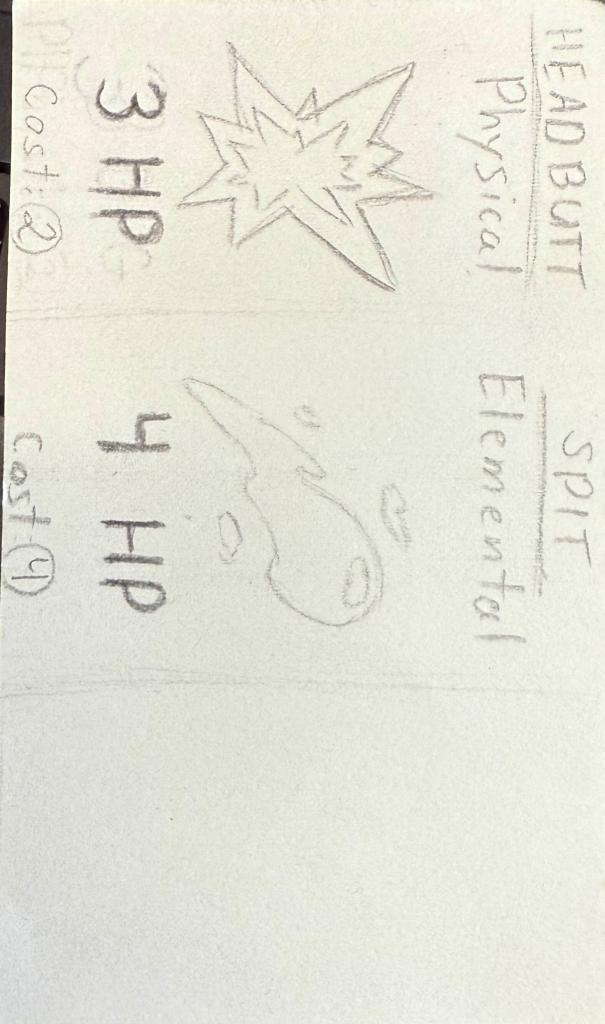 HEADBUTT
Physical
3 HP
Cost: 2
SPIT
Elemental
4 HP
Cost: 4